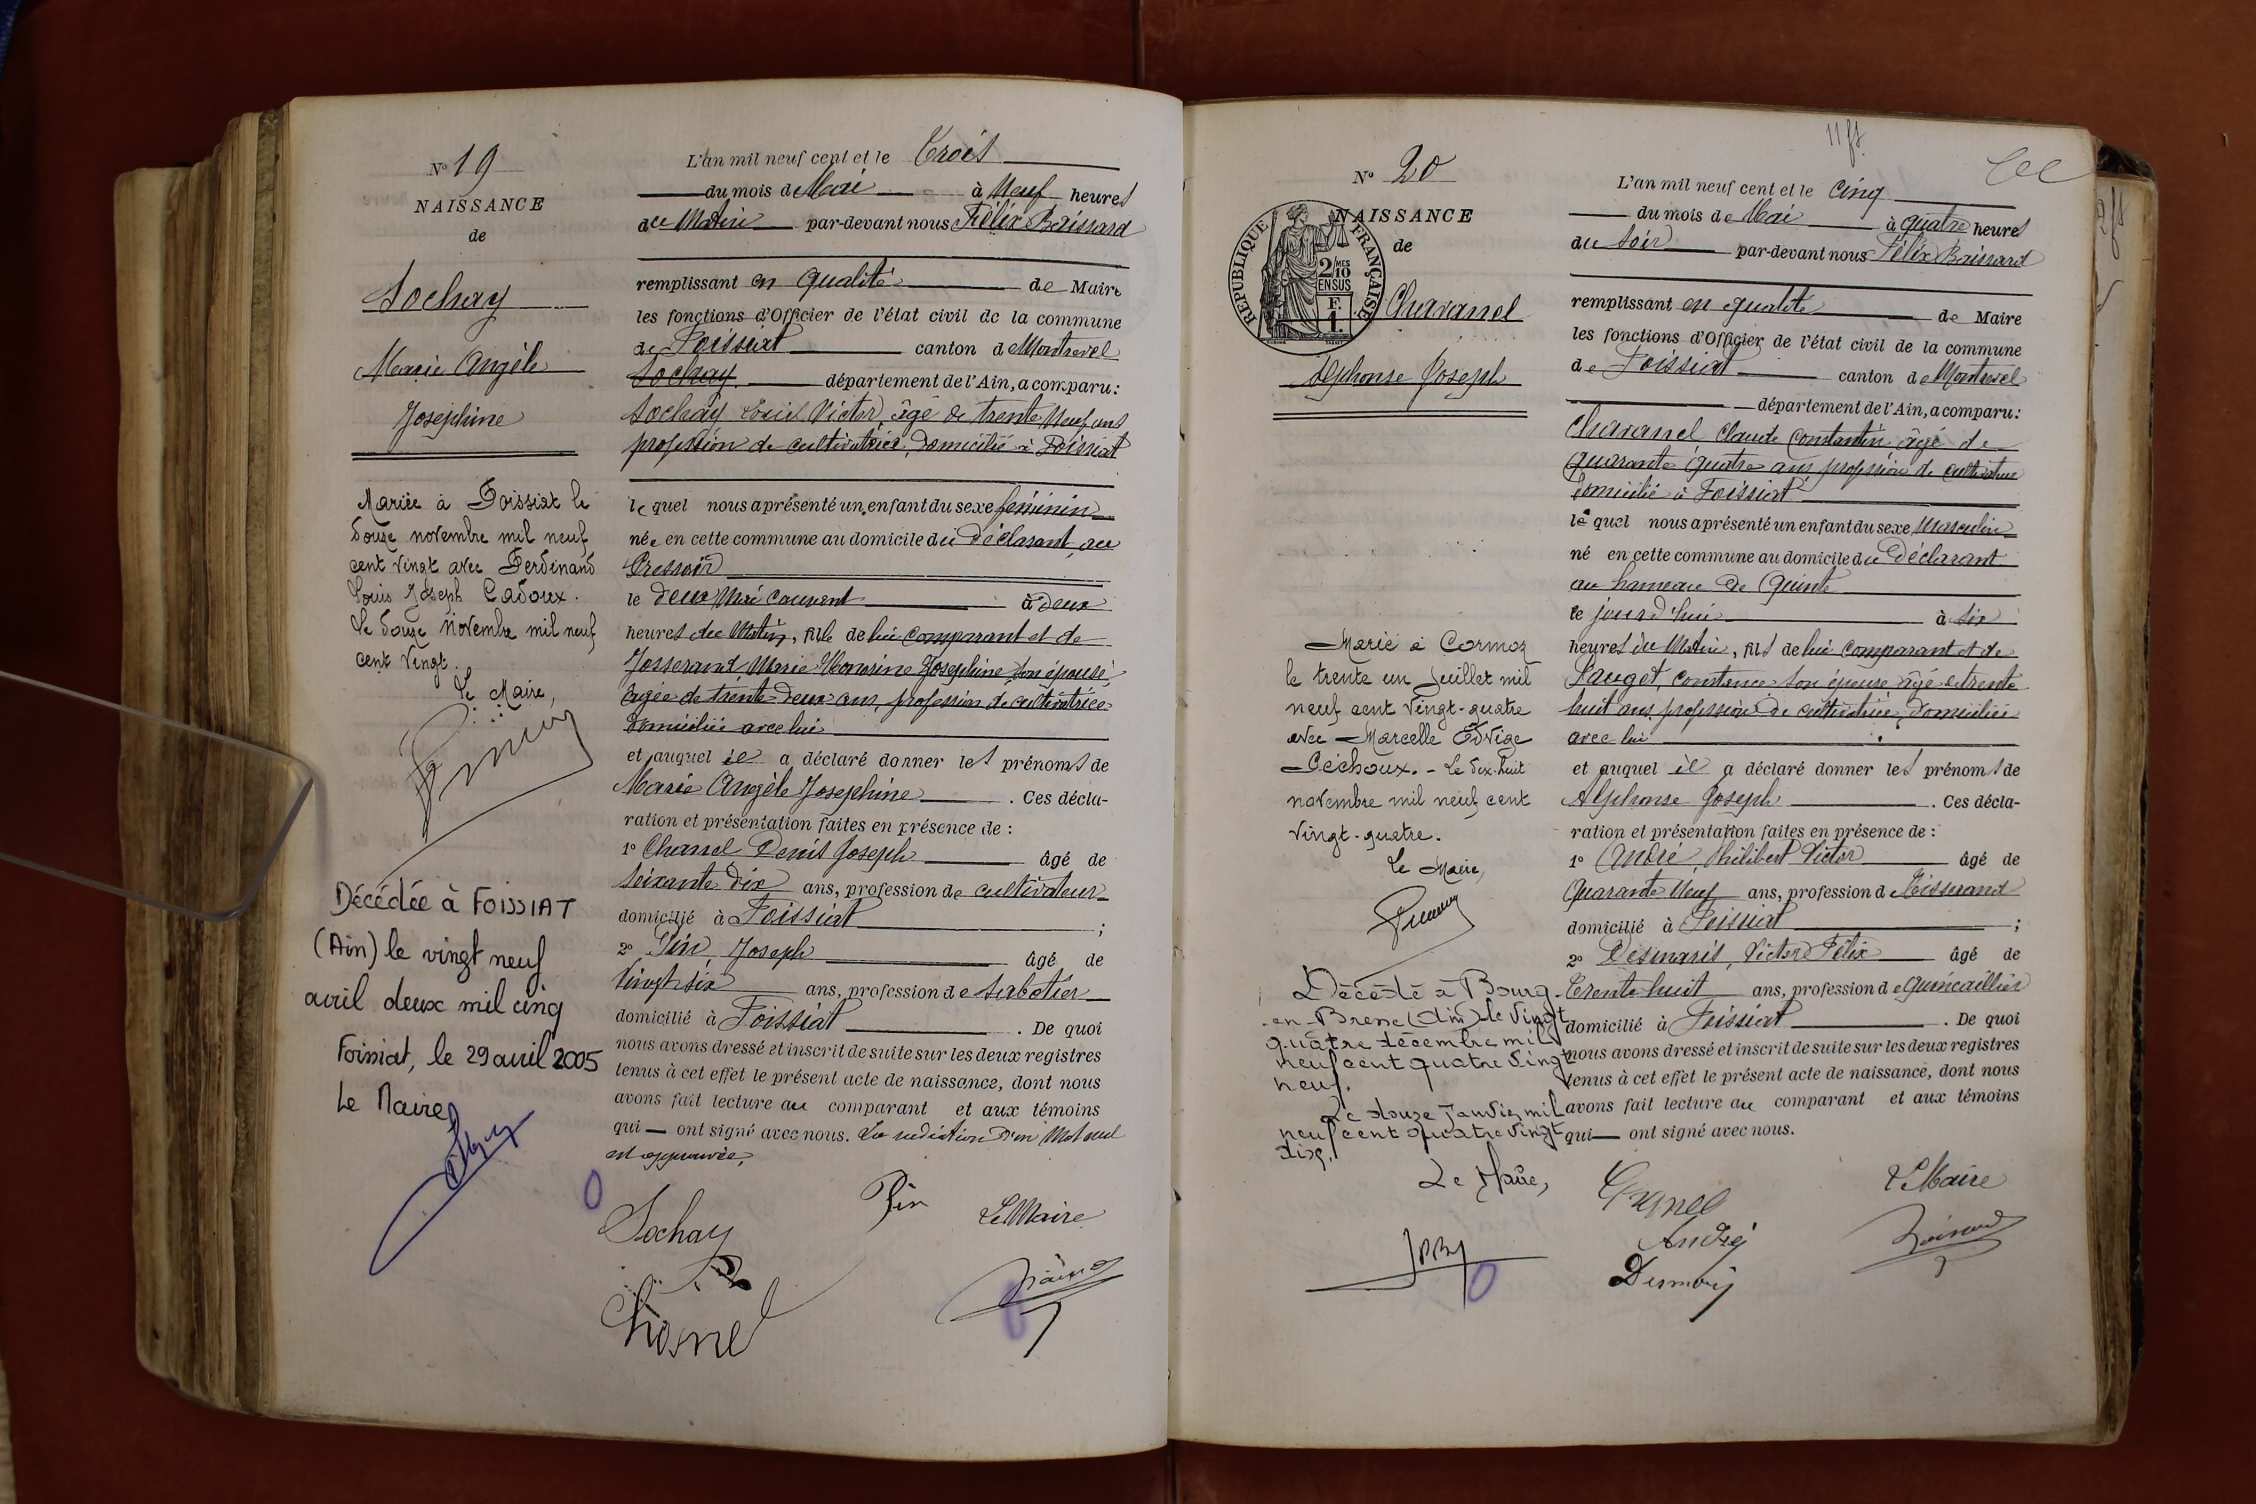 N° 19
NAISSANCE
de
Sochay
Marie Angèle
Joséphine
Mariée à Foissiat le
douze novembre mil neuf
cent vingt avec Ferdinand
Louis Joseph Cadoux.
Le douze novembre mil neuf
cent vingt.
Le Maire,
Décédée à FOISSIAT
(Ain) le vingt neuf
avril deux mil cinq
Foissiat, le 29 avril 2005
Le Maire
L'an mil neuf cent et le Trois
du mois de Mai à Neuf heures
du Matin par-devant nous Félix Boissard
remplissant en qualité de Maire
les fonctions d'Officier de l'état civil de la commune
de Foissiat canton de Montrevel
Sochay département de l'Ain, a comparu:
Sochay Victor âgé de trente Neuf ans
profession de cultivateur, domicilié à Foissiat
lequel nous a présenté un enfant du sexe féminin
née en cette commune au domicile du déclarant au
Pressoir
le deux Mai courant à deux
heures du Matin, fille de lui comparant et de
Josserand Marie Honorine Joséphine son épouse
âgée de trente deux ans, profession de cultivatrice
domiciliée avec lui
et auquel il a déclaré donner les prénoms de
Marie Angèle Joséphine. Ces décla-
ration et présentation faites en présence de :
1° Chanel Denis Joseph âgé de
soixante dix ans, profession de cultivateur
domicilié à Foissiat ;
2° Pin, Joseph âgé de
vingt six ans, profession de sabotier
domicilié à Foissiat. De quoi
nous avons dressé et inscrit de suite sur les deux registres
tenus à cet effet le présent acte de naissance, dont nous
avons fait lecture au comparant et aux témoins
qui — ont signé avec nous. La radiation d'un Mot nul
est approuvée.
Sochay
Pin
Le Maire
Chanel
N° 20
NAISSANCE
de
RÉPUBLIQUE FRANÇAISE
2/10 MES
EN SUS
F.
1.
Chavanel
Alphonse Joseph
Marié à Cormoz
le trente un Juillet mil
neuf cent vingt-quatre
avec Marcelle Edvige
Céchoux. - Le dix-huit
novembre mil neuf cent
vingt-quatre.
Le Maire,
Décédé à Bourg-
en-Bresse (Ain) le vingt
quatre décembre mil
neuf cent quatre vingt
neuf.
Le douze Janvier mil
neuf cent quatre vingt
dix.
Le Maire,
L'an mil neuf cent et le cinq
du mois de Mai à quatre heures
du soir par-devant nous Félix Boissard
remplissant en qualité de Maire
les fonctions d'Officier de l'état civil de la commune
de Foissiat canton de Montrevel
département de l'Ain, a comparu:
Chavanel Claude Constantin âgé de
quarante quatre ans profession de cultivateur
domicilié à Foissiat
lequel nous a présenté un enfant du sexe Masculin
né en cette commune au domicile du déclarant
au hameau de Quinte
le jourd'hui à six
heures du Matin, fils de lui comparant et de
Pauget, Constance son épouse âgé de trente
huit ans, profession de cultivatrice, domiciliée
avec lui
et auquel il a déclaré donner les prénoms de
Alphonse Joseph. Ces décla-
ration et présentation faites en présence de :
1° André, Philibert Victor âgé de
Quarante Neuf ans, profession de Tisserand
domicilié à Foissiat ;
2° Desmaris, Victor Félix âgé de
Trente huit ans, profession de quincaillier
domicilié à Foissiat. De quoi
nous avons dressé et inscrit de suite sur les deux registres
tenus à cet effet le présent acte de naissance, dont nous
avons fait lecture au comparant et aux témoins
qui — ont signé avec nous.
Le Maire
André
Desmaris